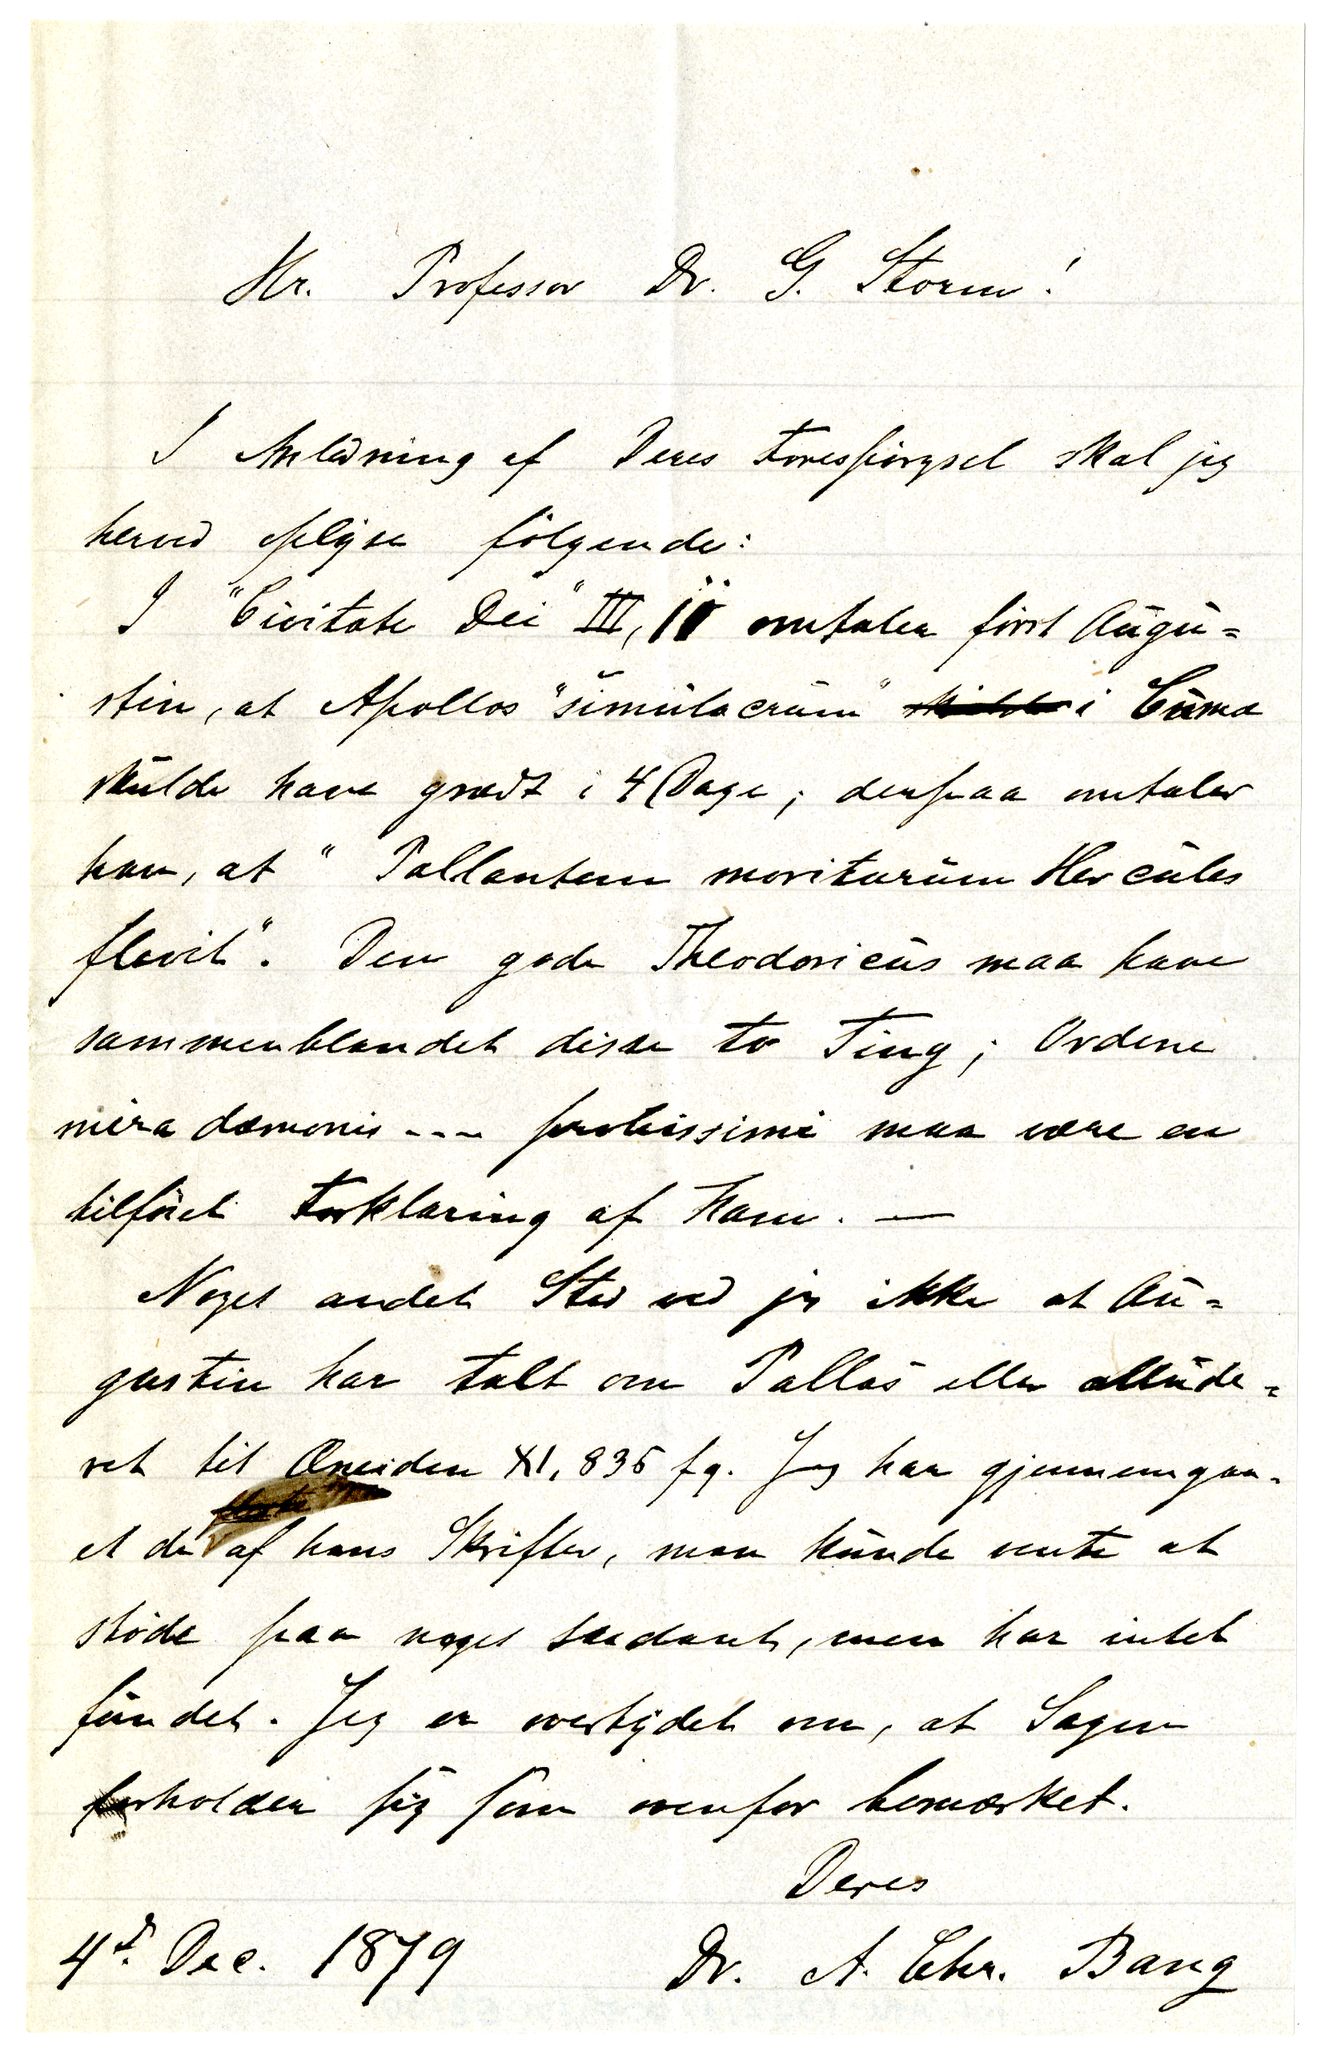 Hr. Professor Dr. G. Storm!
I Anledning af Deres Forespörgsel skal jeg
herved oplyse fölgende:
I "Civitate Dei" III, 11 omtaler först Augu=
stin, at Apollos "simulacrum" i Cuma
skulde have grædt i 4 Dage; derpaa omtaler
han, at "Pallantem moriturum Hercules
flevit". Den gode Theodoricus maa have
sammenblandet disse to Ting; Ordene
mira dæmonis --- probissimi maa være en
tilföiet Forklaring af ham. —
Noget andet Sted ved jeg ikke at Au=
gustin har talt om Pallas eller allude=
ret til Æneiden XI, 835 fg. Jeg har gjennemgaa=
et de fleste af hans Skrifter, man kunde vente at
stöde paa noget saadant, men har intet
fundet. Jeg er overtydet om, at Sagen
forholder sig som ovenfor bemærket.
Deres
4de Dec. 1879 Dr. A. Chr. Bang